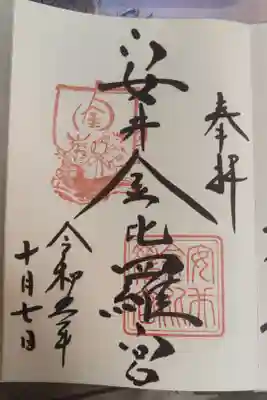 奉拝
安井金比羅宮
令和五年
十月七日
金